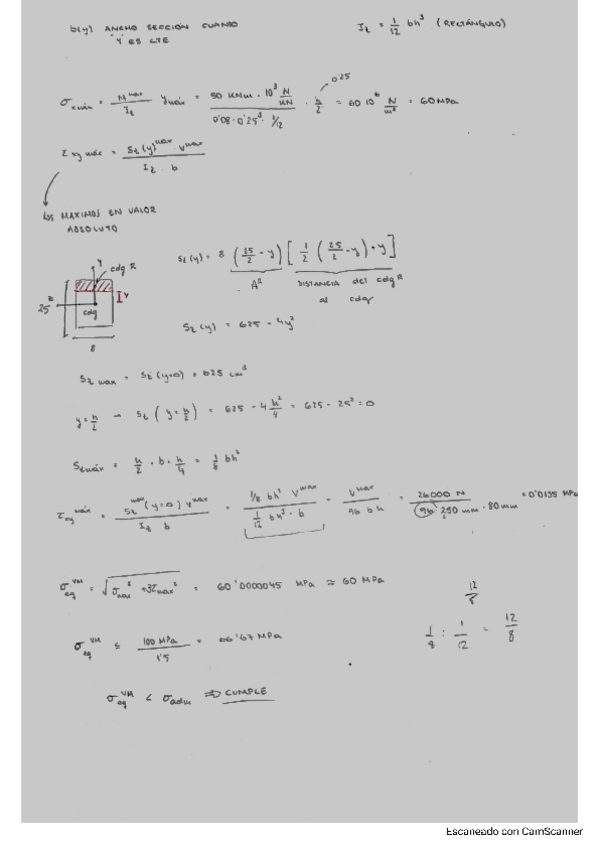 b(y) ANCHO SECCIÓN CUANDO
"Y" ES CTE
I_z = 1/12 bh³ (RECTÁNGULO)
σ_x máx = M^max / I_z · y_máx = 50 kNm · 10³ N/kN / 0'08 · 0'25³ · 1/12 · h/2 = 60 10⁶ N/m² = 60 MPa
0'25
τ_xy máx = S_z(y)^max · V^max / I_z · b
LOS MAXIMOS EN VALOR
ABSOLUTO
Y
cdg R
25
cdg
Y
8
S_z(y) = 8 (25/2 - y) [ 1/2 (25/2 - y) + y ]
DISTANCIA del cdg R
al cdg
S_z(y) = 625 - 4y²
S_z max = S_z (y=0) = 625 cm³
y = h/2 → S_z (y = h/2) = 625 - 4 h²/4 = 625 - 25² = 0
S_z máx = h/2 · b · h/4 = 1/8 bh²
τ_xy^máx = S_z^max (y=0) V^max / I_z b = 1/8 bh² V^max / 1/12 bh³ · b = V^max / 96 b h = 26000 N / 96 · 250 mm · 80 mm = 0'0135 MPa
σ_eq^VM = √(σ_max² + 3τ_max²) = 60'0000045 MPa ≈ 60 MPa
12/8
σ_eq^VM ≤ 100 MPa / 1'5 = 66'67 MPa
1/8 : 1/12 = 12/8
σ_eq^VM < σ_adm ⇒ CUMPLE
Escaneado con CamScanner